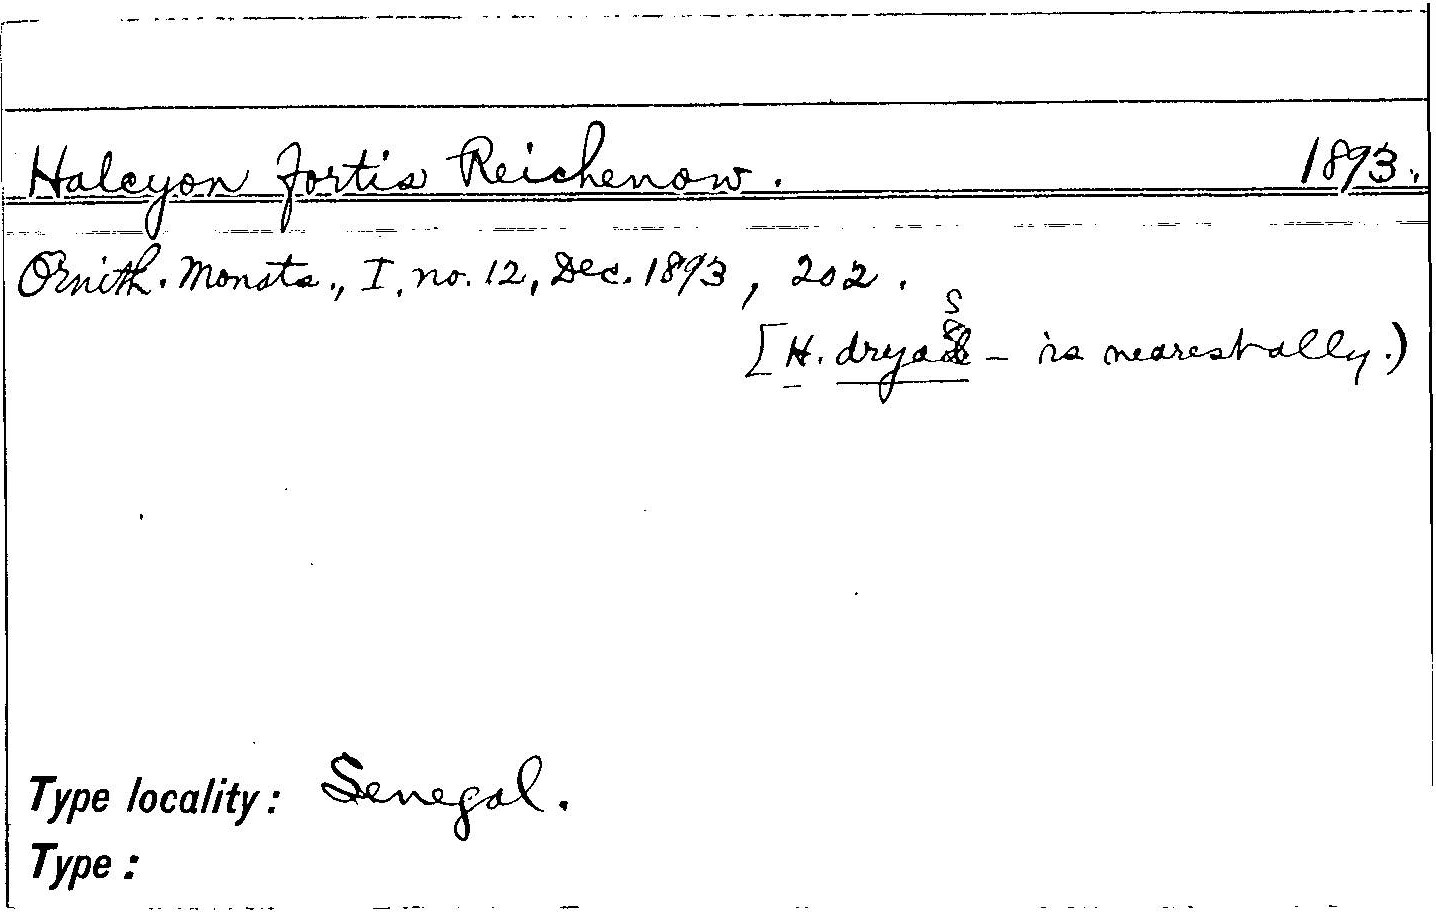 Halcyon fortis Reichenow. 1893.
Ornith. Monats., I, no. 12, Dec. 1893, 202.
[H. dryas - is nearest ally.)
Type locality: Senegal.
Type: